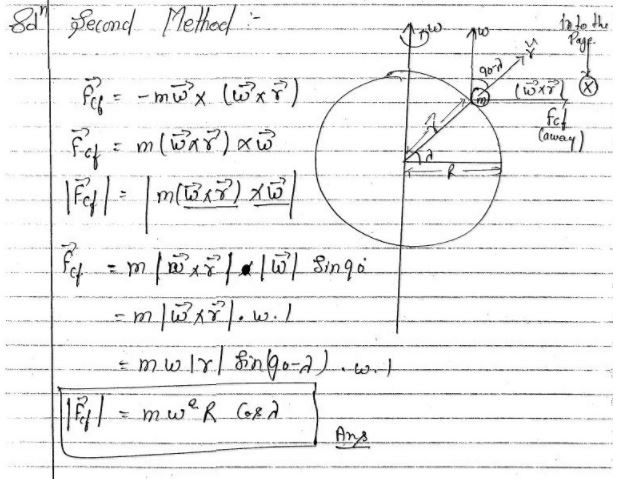 Solⁿ Second Method :-
F⃗cf = - m ω⃗ x (ω⃗ x r⃗)
F⃗cf = m (ω⃗ x r⃗) x ω⃗
|F⃗cf| = | m(ω⃗ x r⃗) x ω⃗ |
F⃗cf = m |ω⃗ x r⃗| . |ω⃗| Sin90°
= m |ω⃗ x r⃗| . ω . 1
= m ω |r| Sin(90-λ) . ω . 1
|F⃗cf| = m ω² R Cos λ
Ans
ω
ω
r̂
90-λ
in to the
Page
(ω⃗ x r⃗)
m
Fcf
(away)
λ
R